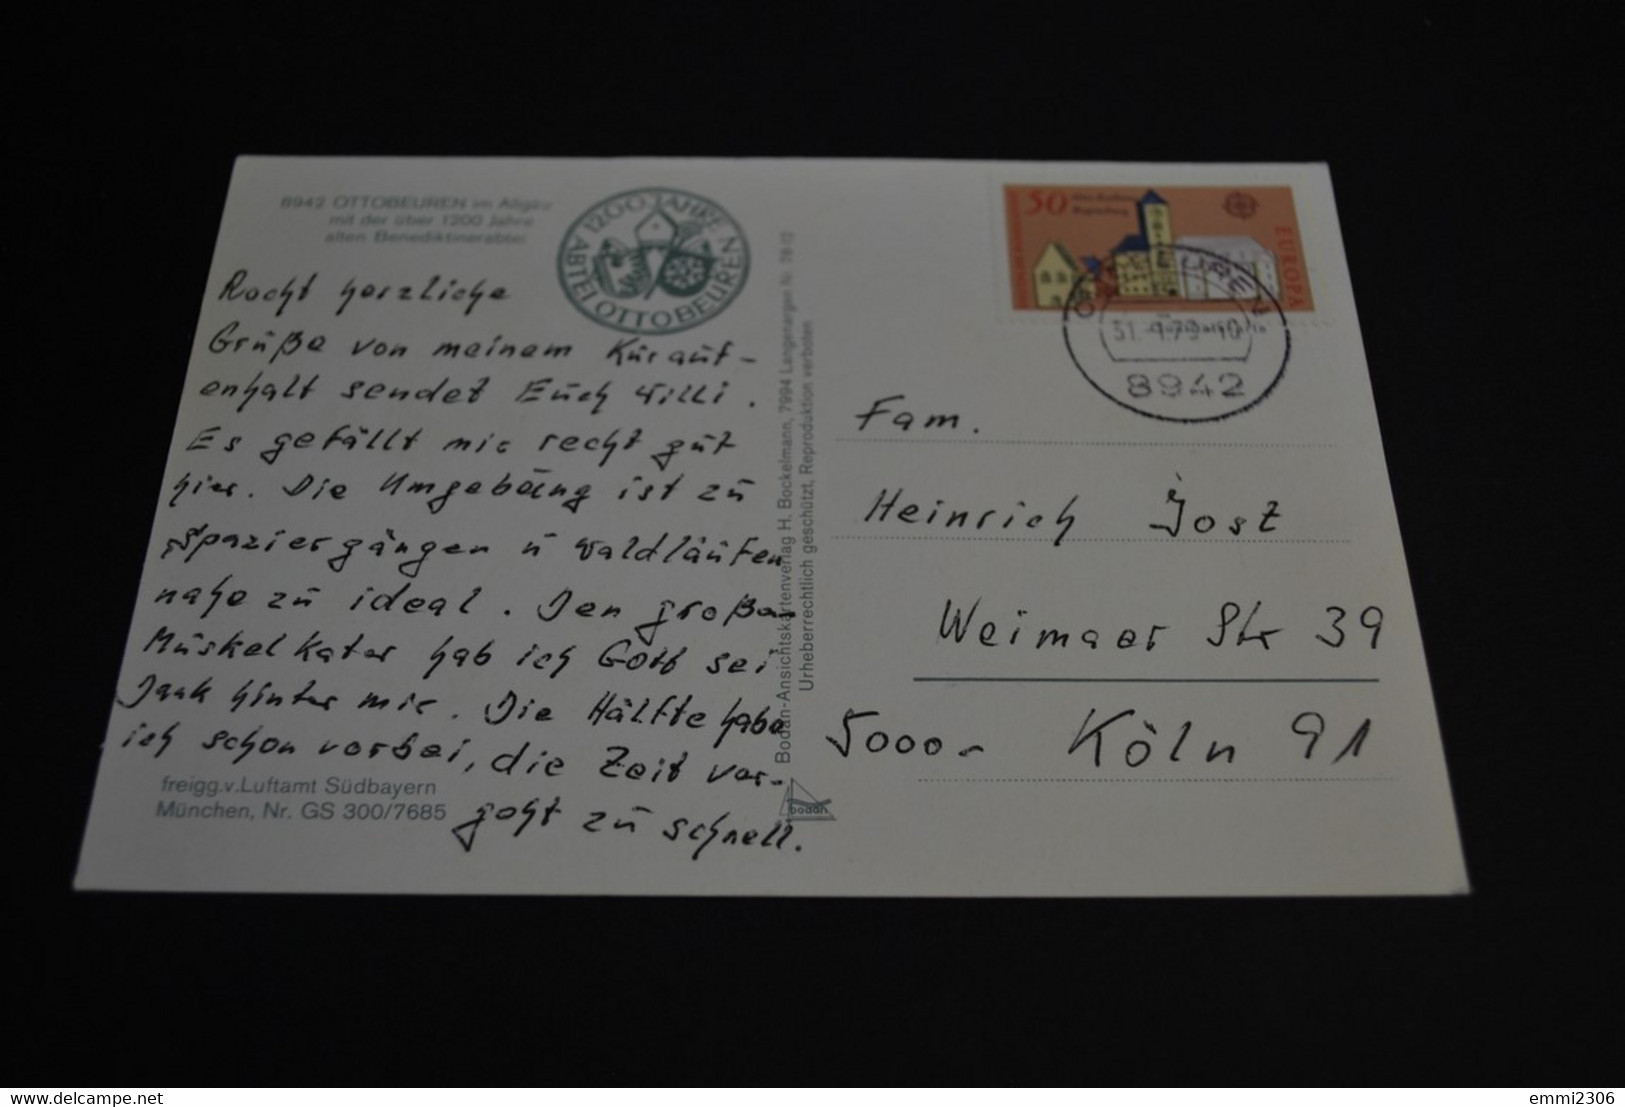 8942 OTTOBEUREN im Allgäu
mit der über 1200 Jahre
alten Benediktinerabtei
1200 JAHRE
ABTEI OTTOBEUREN
Recht herzliche
Grüße von meinem Kurauf-
enhalt sendet Euch Willi.
Es gefällt mir recht gut
hier. Die Umgebung ist zu
Spaziergängen u Waldläufen
nahe zu ideal. Den großen
Muskelkater hab ich Gott sei
Dank hinter mir. Die Hälfte habe
ich schon vorbei, die Zeit ver-
geht zu schnell.
freigg.v.Luftamt Südbayern
München, Nr. GS 300/7685
Bodan-Ansichtskartenverlag H. Bockelmann, 7994 Langenargen Nr. 78-12
Urheberrechtlich geschützt, Reproduktion verboten
bodan
50
Altes Rathaus
Regensburg
EUROPA
8942
Fam.
Heinrich Jost
Weimaer Str 39
5000- Köln 91
delcampe.net
emmi2306